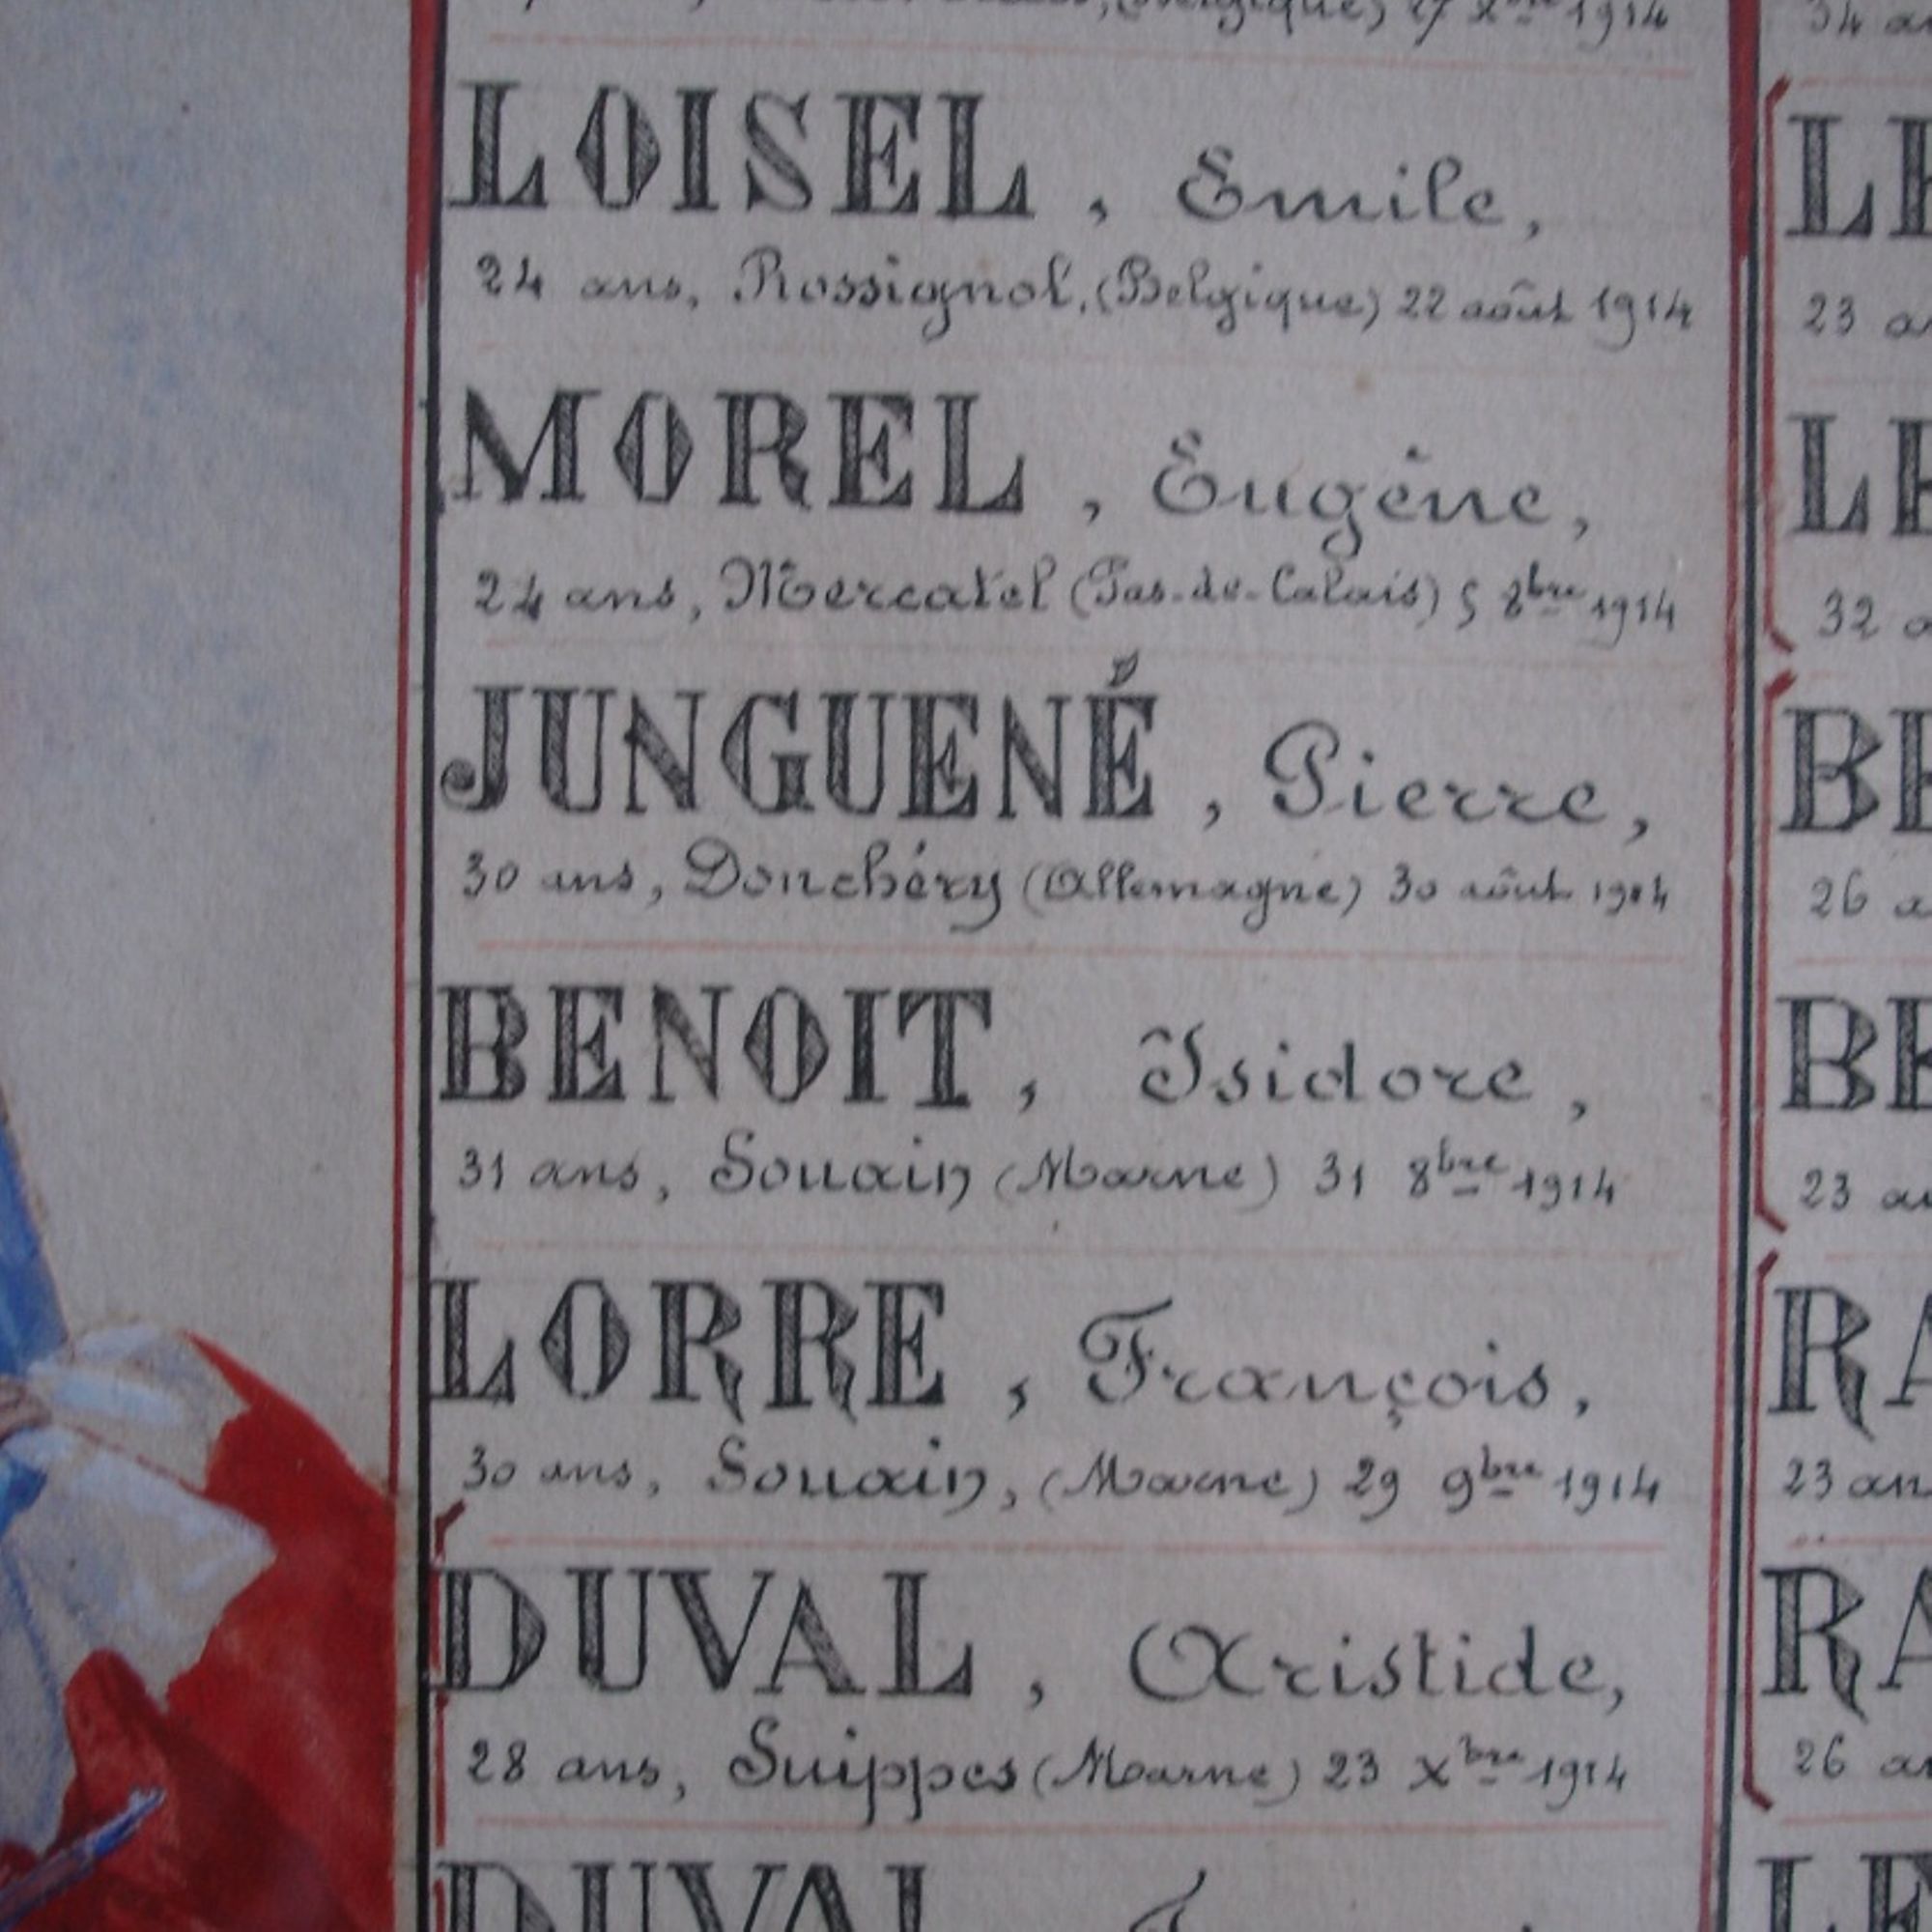 (Belgique) 27 Xbre 1914
LOISEL, Emile,
24 ans, Rossignol, (Belgique) 22 août 1914
MOREL, Eugène,
24 ans, Mercatel (Pas-de-Calais) 5 8bre 1914
JUNGUENÉ, Pierre,
30 ans, Donchéry (Allemagne) 30 août 1914
BENOIT, Isidore,
31 ans, Souain (Marne) 31 8bre 1914
LORRE, François,
30 ans, Souain, (Marne) 29 9bre 1914
DUVAL, Aristide,
28 ans, Suippes (Marne) 23 Xbre 1914
DUVAL
34 a
LE
23 a
LE
32 a
BE
26 a
BE
23 a
RA
23 an
RA
26 a
LE